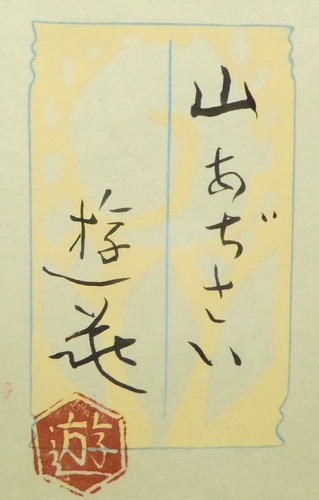 山あぢさい
遊花
遊